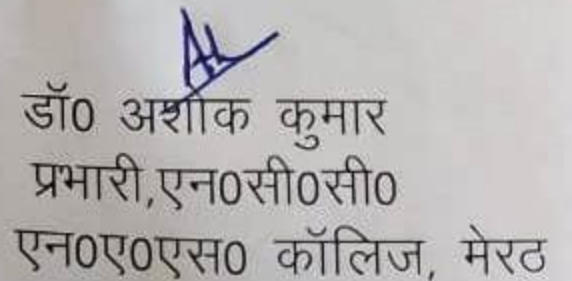 डॉ0 अशोक कुमार
प्रभारी,एन0सी0सी0
एन0ए0एस0 कॉलिज, मेरठ